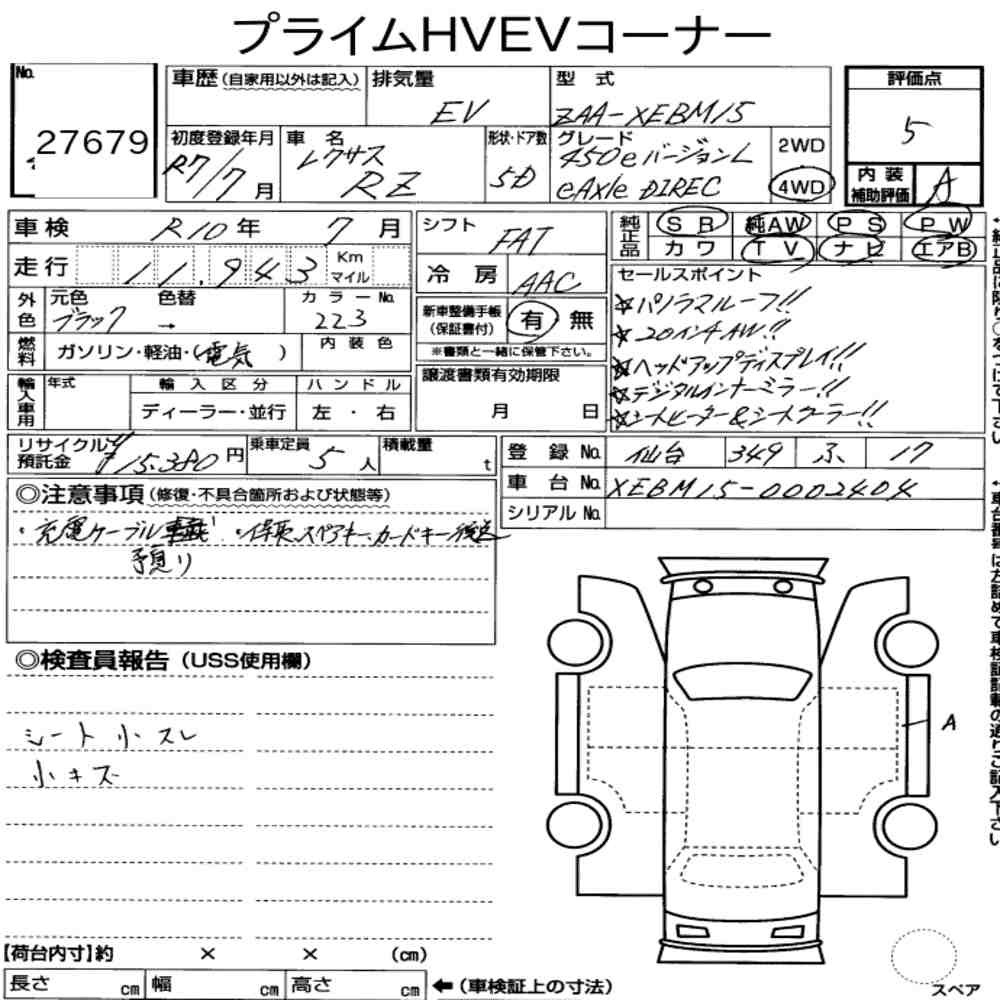 プライムHVEVコーナー
No.
27679
車歴(自家用以外は記入)
排気量
EV
型 式
ZAA-XEBM15
評価点
5
初度登録年月
R7/7月
車 名
レクサス
RZ
形状・ドア数
5D
グレード
450eバージョンL
eAxle DIREC
2WD
4WD
内装補助評価
A
車検 R10年 7月
走行 11,943 Km マイル
シフト
FAT
冷房 AAC
純正品
SR 純AW PS PW
カワ TV ナビ エアB
外色
元色 色替 カラーNo.
ブラック → 223
燃料
ガソリン・軽油・(電気)
内装色
新車整備手帳
(保証書付)
有 無
※書類と一緒に保管下さい。
セールスポイント
☆パノラマルーフ!!
☆20インチAW!!
☆ヘッドアップディスプレイ!!
☆デジタルインナーミラー!!
☆シートヒーター&シートクーラー!!
輸入車用
年式
輸入区分
ハンドル
ディーラー・並行
左・右
譲渡書類有効期限
月 日
リサイクル預託金 ¥15,380円
乗車定員 5人
積載量 t
登録No. 仙台 349 ふ 17
車台No. XEBM15-0002404
シリアルNo.
◎注意事項(修復・不具合箇所および状態等)
・充電ケーブル ・保取、スペアキー、カードキー後送
予見り
◎検査員報告(USS使用欄)
シート小スレ
小キズ
A
【荷台内寸】約 × × (cm)
長さ cm 幅 cm 高さ cm ←(車検証上の寸法)
スペア
←純正品に限り○をつけて下さい
←車台番号は左詰めで車検証記載の通りご記入下さい